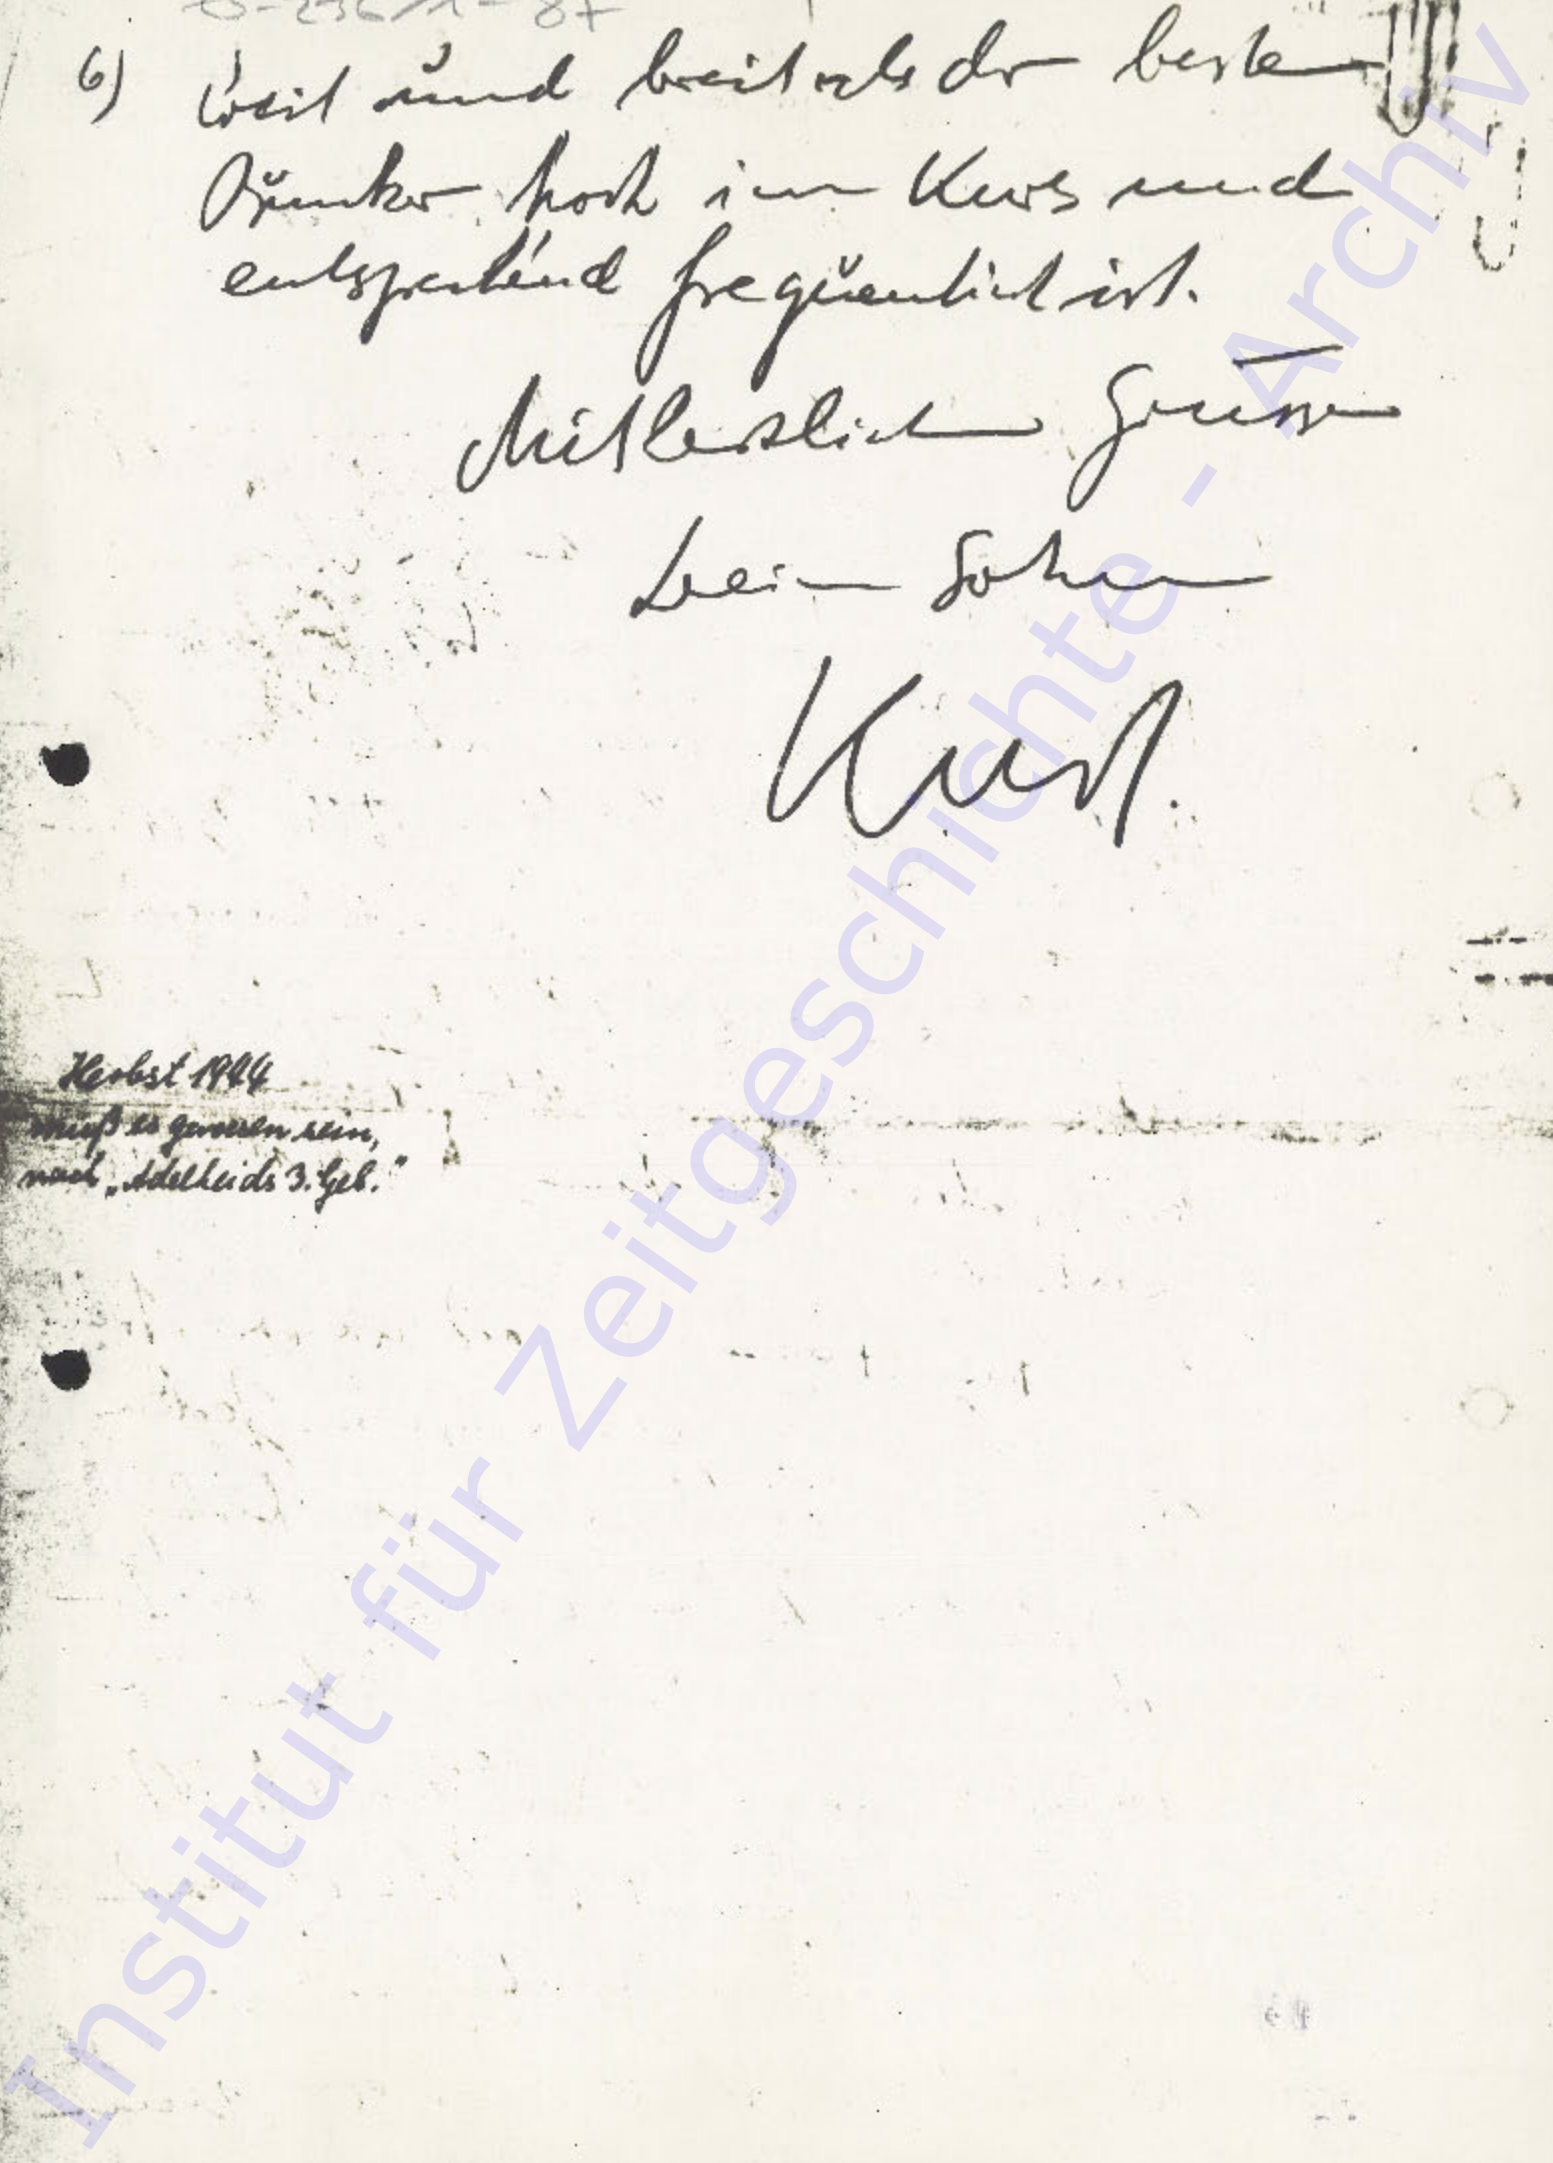 6) weit und breit als der beste
Bunker hoch im Kurs und
entsprechend frequentiert ist.
Mit herzlichen Grüssen
Dein Sohn
Kurt.
Herbst 1944
muß es gewesen sein,
nach „Adelheids 3. Geb.“
Institut für Zeitgeschichte - Archiv